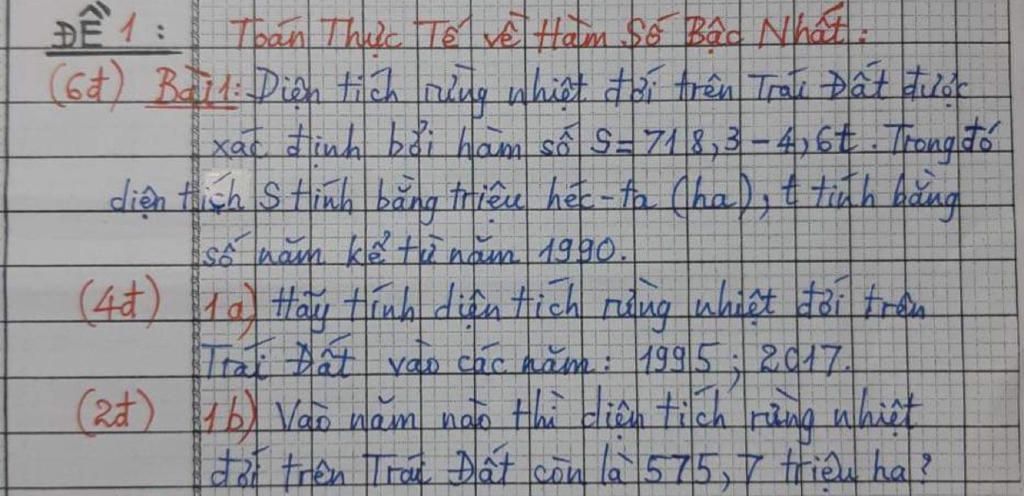 ĐỀ 1: Toán Thực Tế về Hàm Số Bậc Nhất:
(6đ) Bài 1: Diện tích rừng nhiệt đới trên Trái Đất được
xác định bởi hàm số S = 718,3 - 4,6t. Trong đó
diện tích S tính bằng triệu héc-ta (ha), t tính bằng
số năm kể từ năm 1990.
(4đ) 1a) Hãy tính diện tích rừng nhiệt đới trên
Trái Đất vào các năm: 1995; 2017.
(2đ) 1b) Vào năm nào thì diện tích rừng nhiệt
đới trên Trái Đất còn là 575,7 triệu ha?